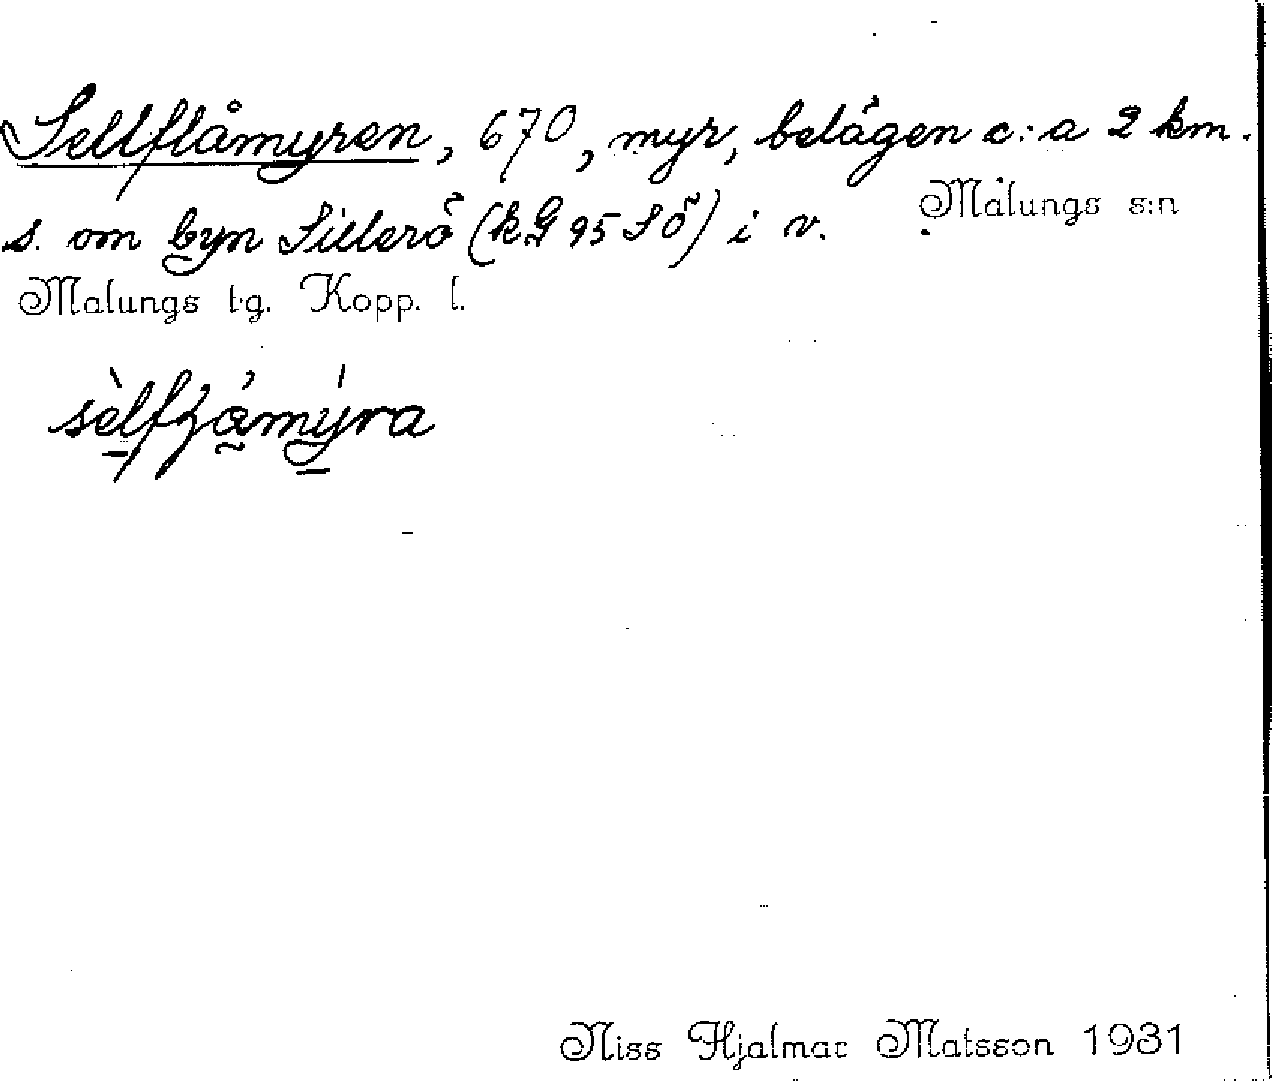 Sellflåmyren, 670, myr, belägen c:a 2 km.
s. om byn Sillerö (kG 95 SÖ) i v. Malungs s:n
Malungs t.g. Kopp. l.
sèlfzåmýra
Niss Hjalmar Matsson 1931